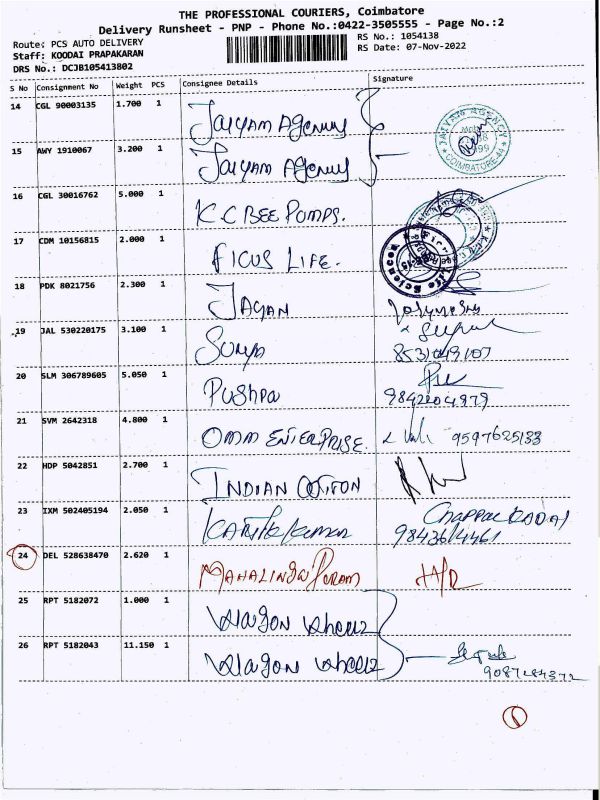 THE PROFESSIONAL COURIERS, Coimbatore
Delivery Runsheet - PNP - Phone No.:0422-3505555 - Page No.:2
Route: PCS AUTO DELIVERY
RS No.: 1054138
Staff: KOODAI PRAPAKARAN
RS Date: 07-Nov-2022
DRS No.: DCJB105413802
S No Consignment No Weight PCS Consignee Details Signature
14 CGL 90003135 1.700 1 JAIYAM AGENCY
JAIYAM AGENCY COIMBATORE-44
15 AWY 1910067 3.200 1 JAIYAM AGENCY
16 CGL 30016762 5.000 1 K.C BEE PUMPS.
17 CDM 10156815 2.000 1 FICUS LIFE.
Ficus Life Sciences
18 PDK 8021756 2.300 1 JAGAN
19 JAL 530220175 3.100 1 SURYA
8531049107
20 SLM 306789605 5.050 1 PUSHPA
9842204979
21 SVM 2642318 4.800 1 OMM ENTERPRISE. 9597625133
22 HDP 5042851 2.700 1 INDIAN COTTON
23 IXM 502405194 2.050 1 KARTHIKKUMAR CHAPPAL KADAI
9843614461
24 DEL 528638470 2.620 1 MAHALINGAPURAM
25 RPT 5182072 1.000 1 WAGON WHEELZ
26 RPT 5182043 11.150 1 WAGON WHEELZ
9087284372